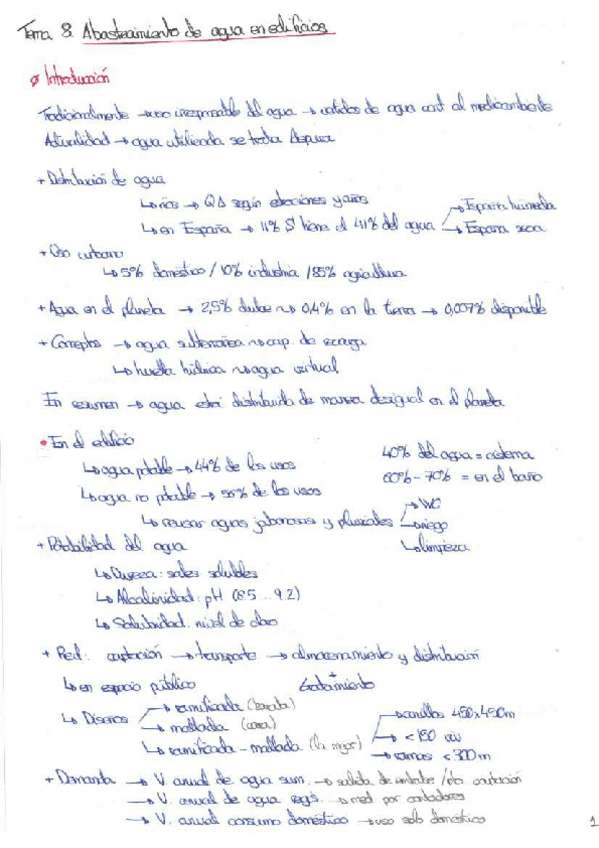 Tema 8. Abastecimiento de agua en edificios
Introducción
Tradicionalmente → uso irresponsable del agua → vertidos de agua cont al medioambiente
Actualidad → agua utilizada se trata depura
+ Distribución de agua
↳ ríos → QΔ según estaciones y años
↳ en España → 11% S tiene el 41% del agua → España húmeda
→ España seca
+ Uso urbano
↳ 5% doméstico / 10% industria / 85% agricultura
+ Agua en el planeta → 2,5% dulce ~> 0,4% en la tierra → 0,007% disponible
+ Conceptos → agua subterránea ~> cap. de recarga
↳ huella hídrica ~> agua virtual
En resumen → agua está distribuida de manera desigual en el planeta
• En el edificio
40% del agua = cisterna
↳ agua potable → 44% de los usos
60% - 70% = en el baño
↳ agua no potable → 56% de los usos
→ WC
↳ reusar aguas jabonosas y pluviales → riego
↳ limpieza
+ Potabilidad del agua
↳ Dureza: sales solubles
↳ Alcalinidad: pH (6.5 ... 9.2)
↳ Salubridad: nivel de cloro
+ Red: captación → transporte → almacenamiento y distribución
↳ en espacio público
+ tratamiento
↳ Diseños → ramificada (barata)
→ mallada (cara)
↳ ramificada - mallada (la mejor) → anillos 450x450m
→ < 150 viv
→ ramas < 300m
+ Demanda → V. anual de agua sum. → salida de embalse / pto captación
→ V. anual de agua regis. → med por contadores
→ V. anual consumo doméstico → uso solo doméstico
1